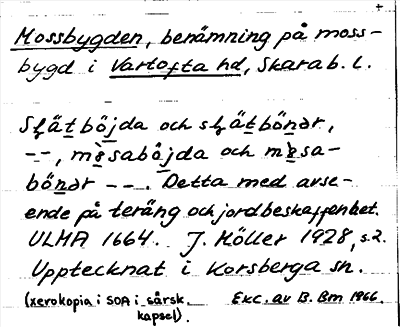 +
Mossbygden, benämning på moss-
bygd i Vartofta hd, Skarab. l.
Slätböjda och slätbönər,
--, mesaböjda och mesa-
bönər ---. Detta med avse-
ende på terräng och jordbeskaffenhet.
ULMA 1664. J. Möller 1928, s.2.
Upptecknat i Korsberga sn.
(xerokopia i SOA i särsk. Exc. av B. Bm 1966.
kapsel).